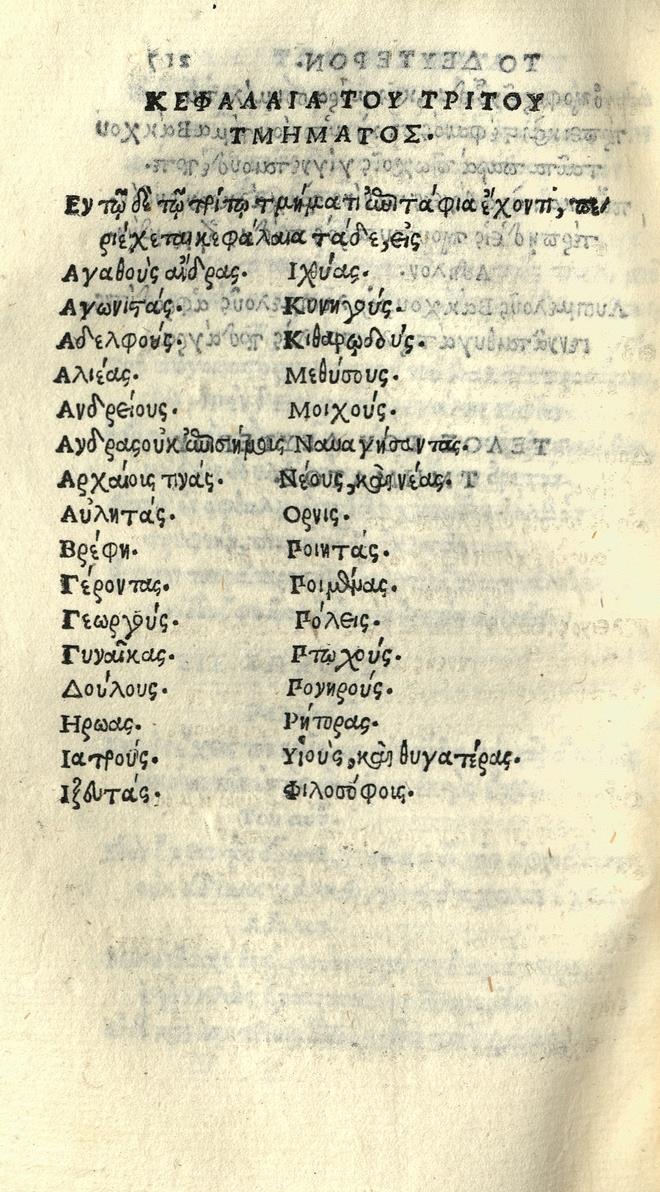 ΚΕΦΑΛΑΙΑ ΤΟΥ ΤΡΙΤΟΥ
ΤΜΗΜΑΤΟΣ.
Εν τῷ δὲ τῷ τρίτῳ τμήματι ἐπιτάφια ἔχοντι, πε/
ριέχεται κεφάλαια τάδε, εἰς
Αγαθοὺς ἄνδρας.
Αγωνιτάς.
Αδελφούς.
Αλιέας.
Ανδρείους.
Ανδρας οὐκ ἐπισήμοις
Αρχαίοις τινάς.
Αὐλητάς.
Βρέφη.
Γέροντας.
Γεωργούς.
Γυναῖκας.
Δούλους.
Ηρωας.
Ιατρούς.
Ιξευτάς.
Ιχθύας.
Κυνηγούς.
Κιθαρῳδούς.
Μεθύσους.
Μοιχούς.
Ναυαγήσαντας.
Νέους, καὶ νέας.
Ορνις.
Ποιητάς.
Ποιμένας.
Πόλεις.
Πτωχούς.
Πονηρούς.
Ρήτορας.
Υἱοὺς, καὶ θυγατέρας.
Φιλοσόφοις.